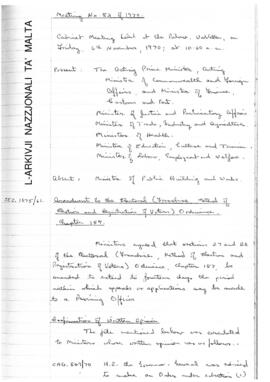 L-ARKIVJI NAZZJONALI TA' MALTA
Meeting No. 52 of 1970.
Cabinet Meeting held at the Palace, Valletta, on
Friday, 6th November, 1970, at 10.20 a.m.
Present : The Acting Prime Minister, Acting
Minister of Commonwealth and Foreign
Affairs, and Minister of Finance,
Customs and Port.
Minister of Justice and Parliamentary Affairs
Minister of Trade, Industry and Agriculture
Minister of Health.
Minister of Education, Culture and Tourism.
Minister of Labour, Employment and Welfare.
Absent : Minister of Public Building and Works.
Amendment to the Electoral (Franchise, Method of
Election and Registration of Voters) Ordinance,
Chapter 159.
Ministers agreed that sections 27 and 28
of the Electoral (Franchise, Method of Election and
Registration of Voters) Ordinance, Chapter 159, be
amended to extend to fourteen days the period
within which appeals or applications may be made
to a Revising Officer.
Confirmation of Written Opinion
The file mentioned below was circulated
to Ministers whose written opinion was as follows:-
H.E. the Governor-General was advised
to make an Order under subsection (1)